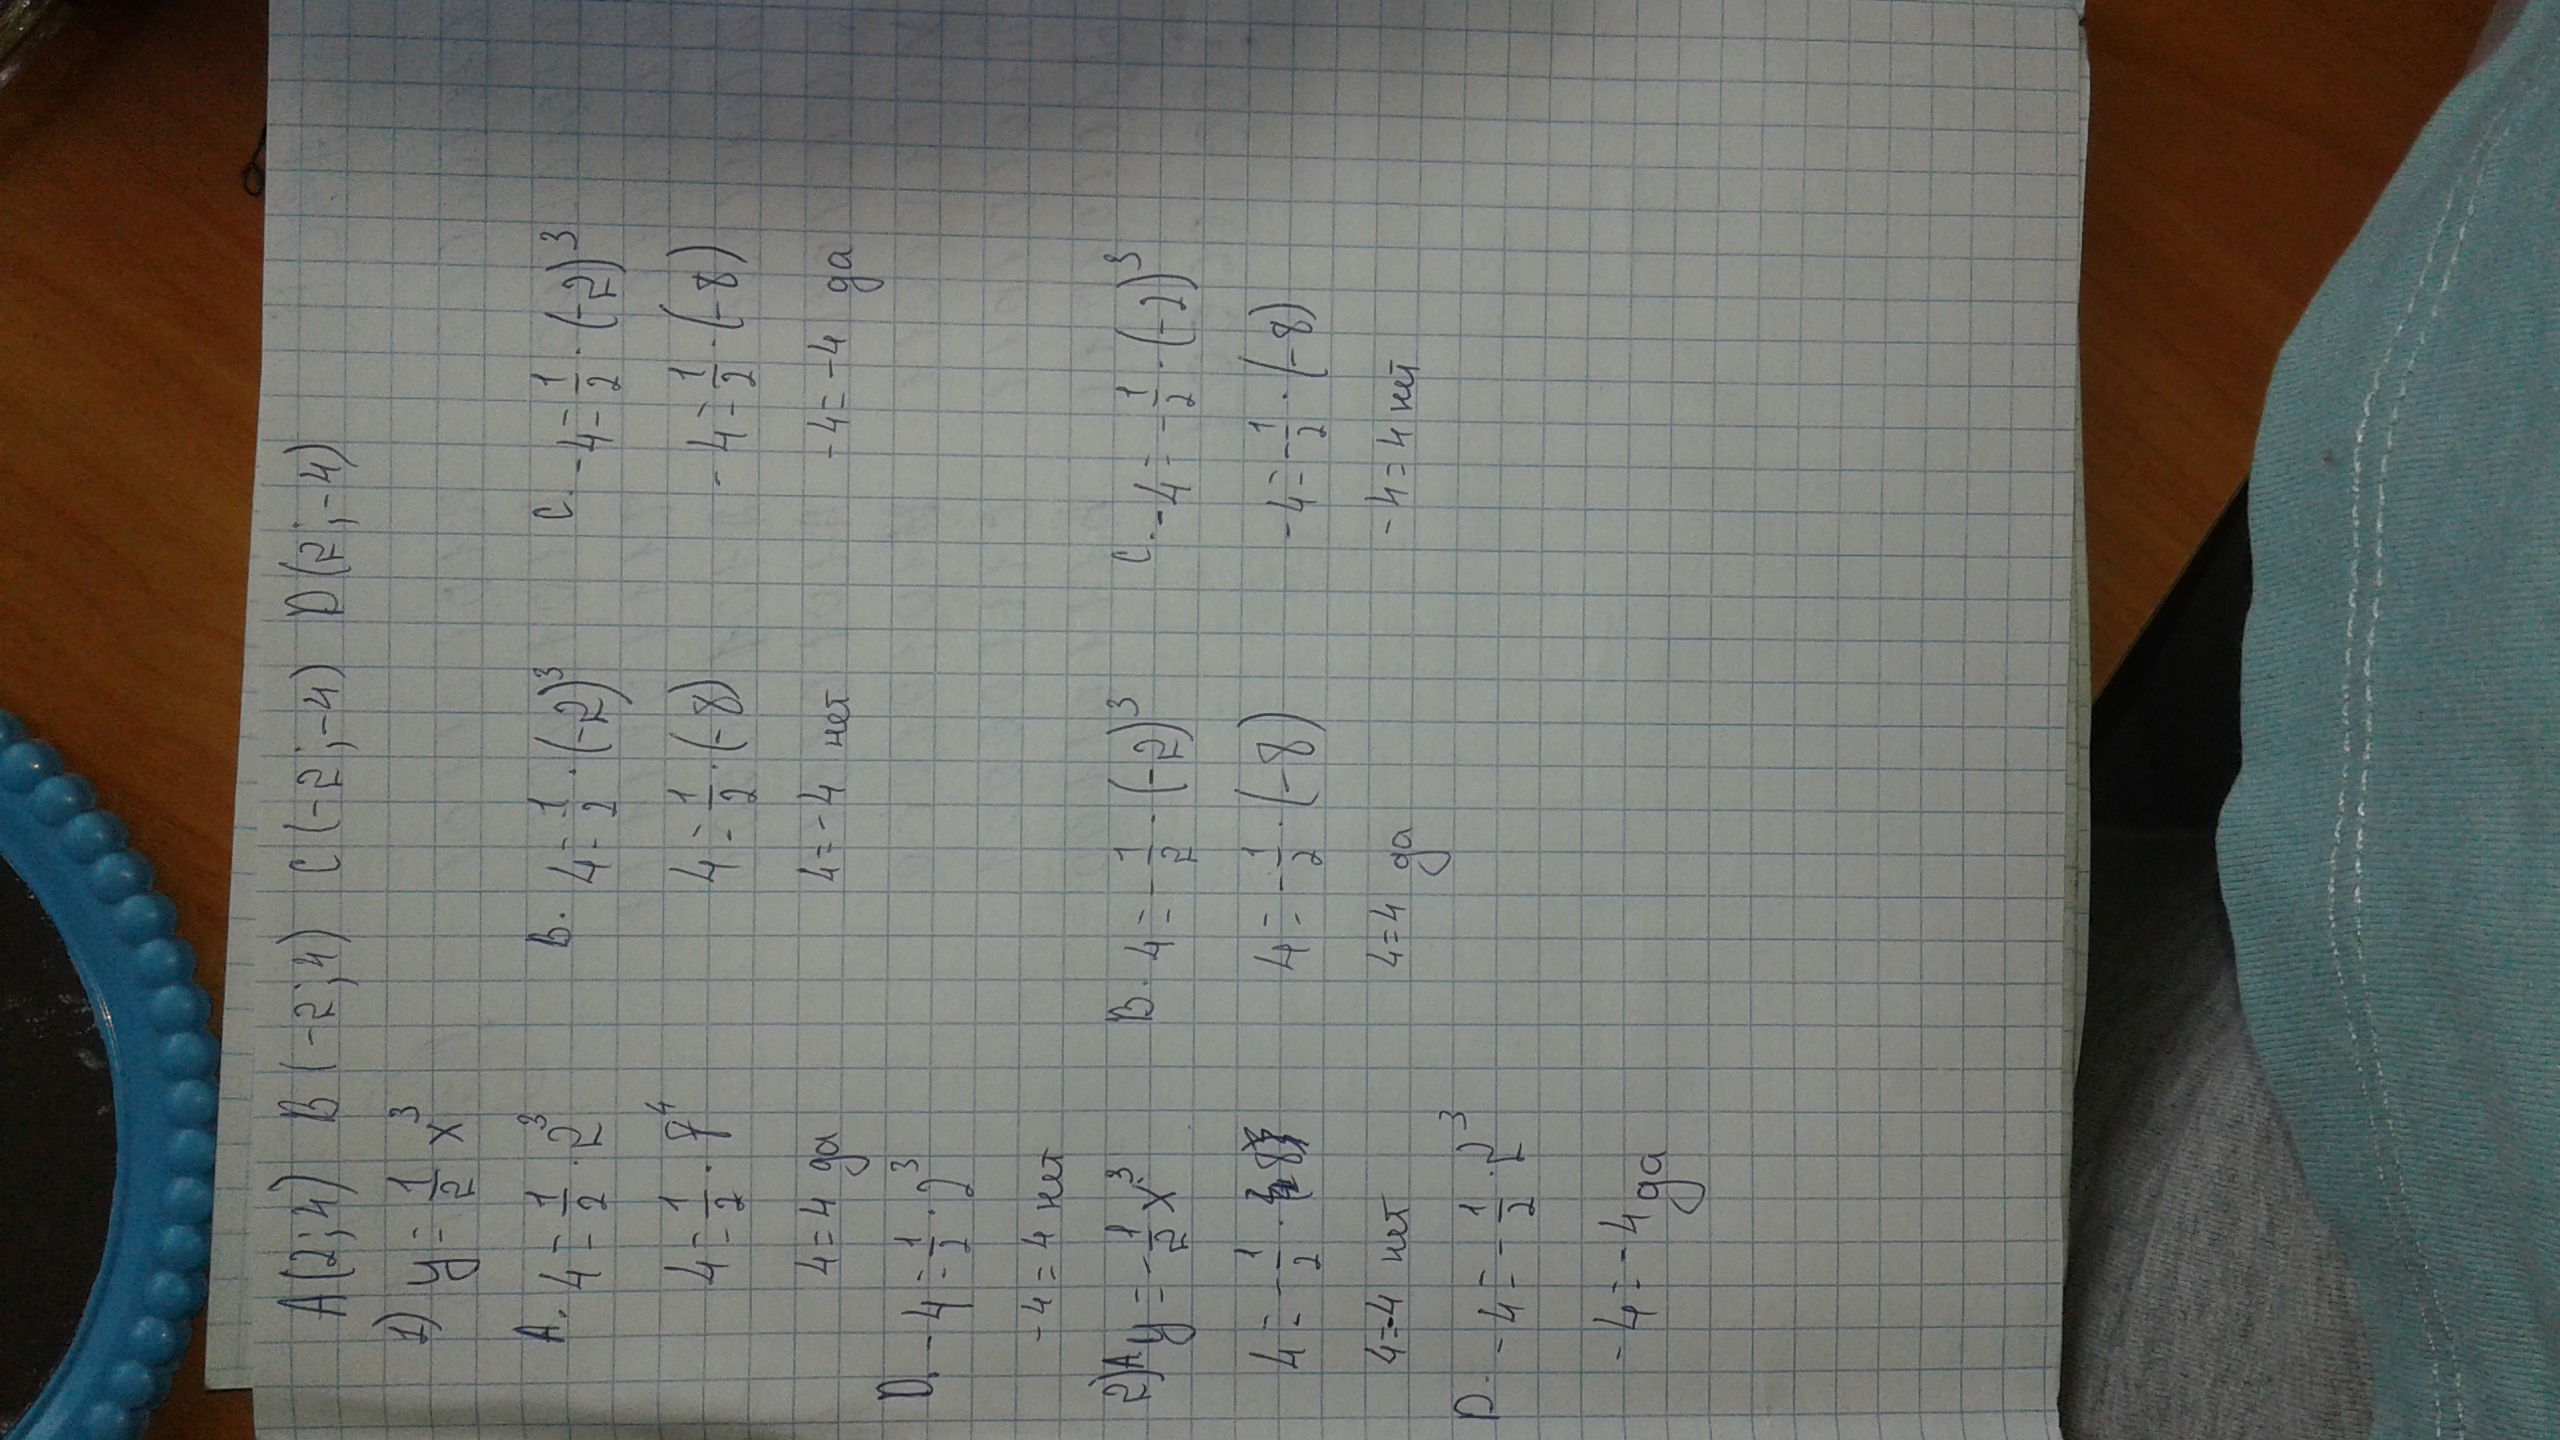 A(2;4) B(-2;4) C(-2;-4) D(2;-4)
1) y = 1/2 x³
A. 4 = 1/2 · 2³
4 = 1/2 · 8⁴
4 = 4 да
B. 4 = 1/2 · (-2)³
4 = 1/2 · (-8)
4 = -4 нет
C. -4 = 1/2 · (-2)³
-4 = 1/2 · (-8)
-4 = -4 да
D. -4 = 1/2 · 2³
-4 = 4 нет
2) A y = -1/2 x³
4 = -1/2 ·
4 = -4 нет
B. 4 = -1/2 · (-2)³
4 = -1/2 · (-8)
4 = 4 да
C. -4 = -1/2 · (-2)³
-4 = -1/2 · (-8)
-4 = 4 нет
D. -4 = -1/2 · 2³
-4 = -4 да